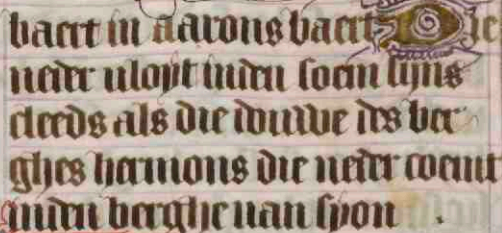 baert in aarons baert Die
neder vloyt inden soem sijns
cleeds als die douwe des ber
ghes hermons die neder coemt
inden berghe van syon .